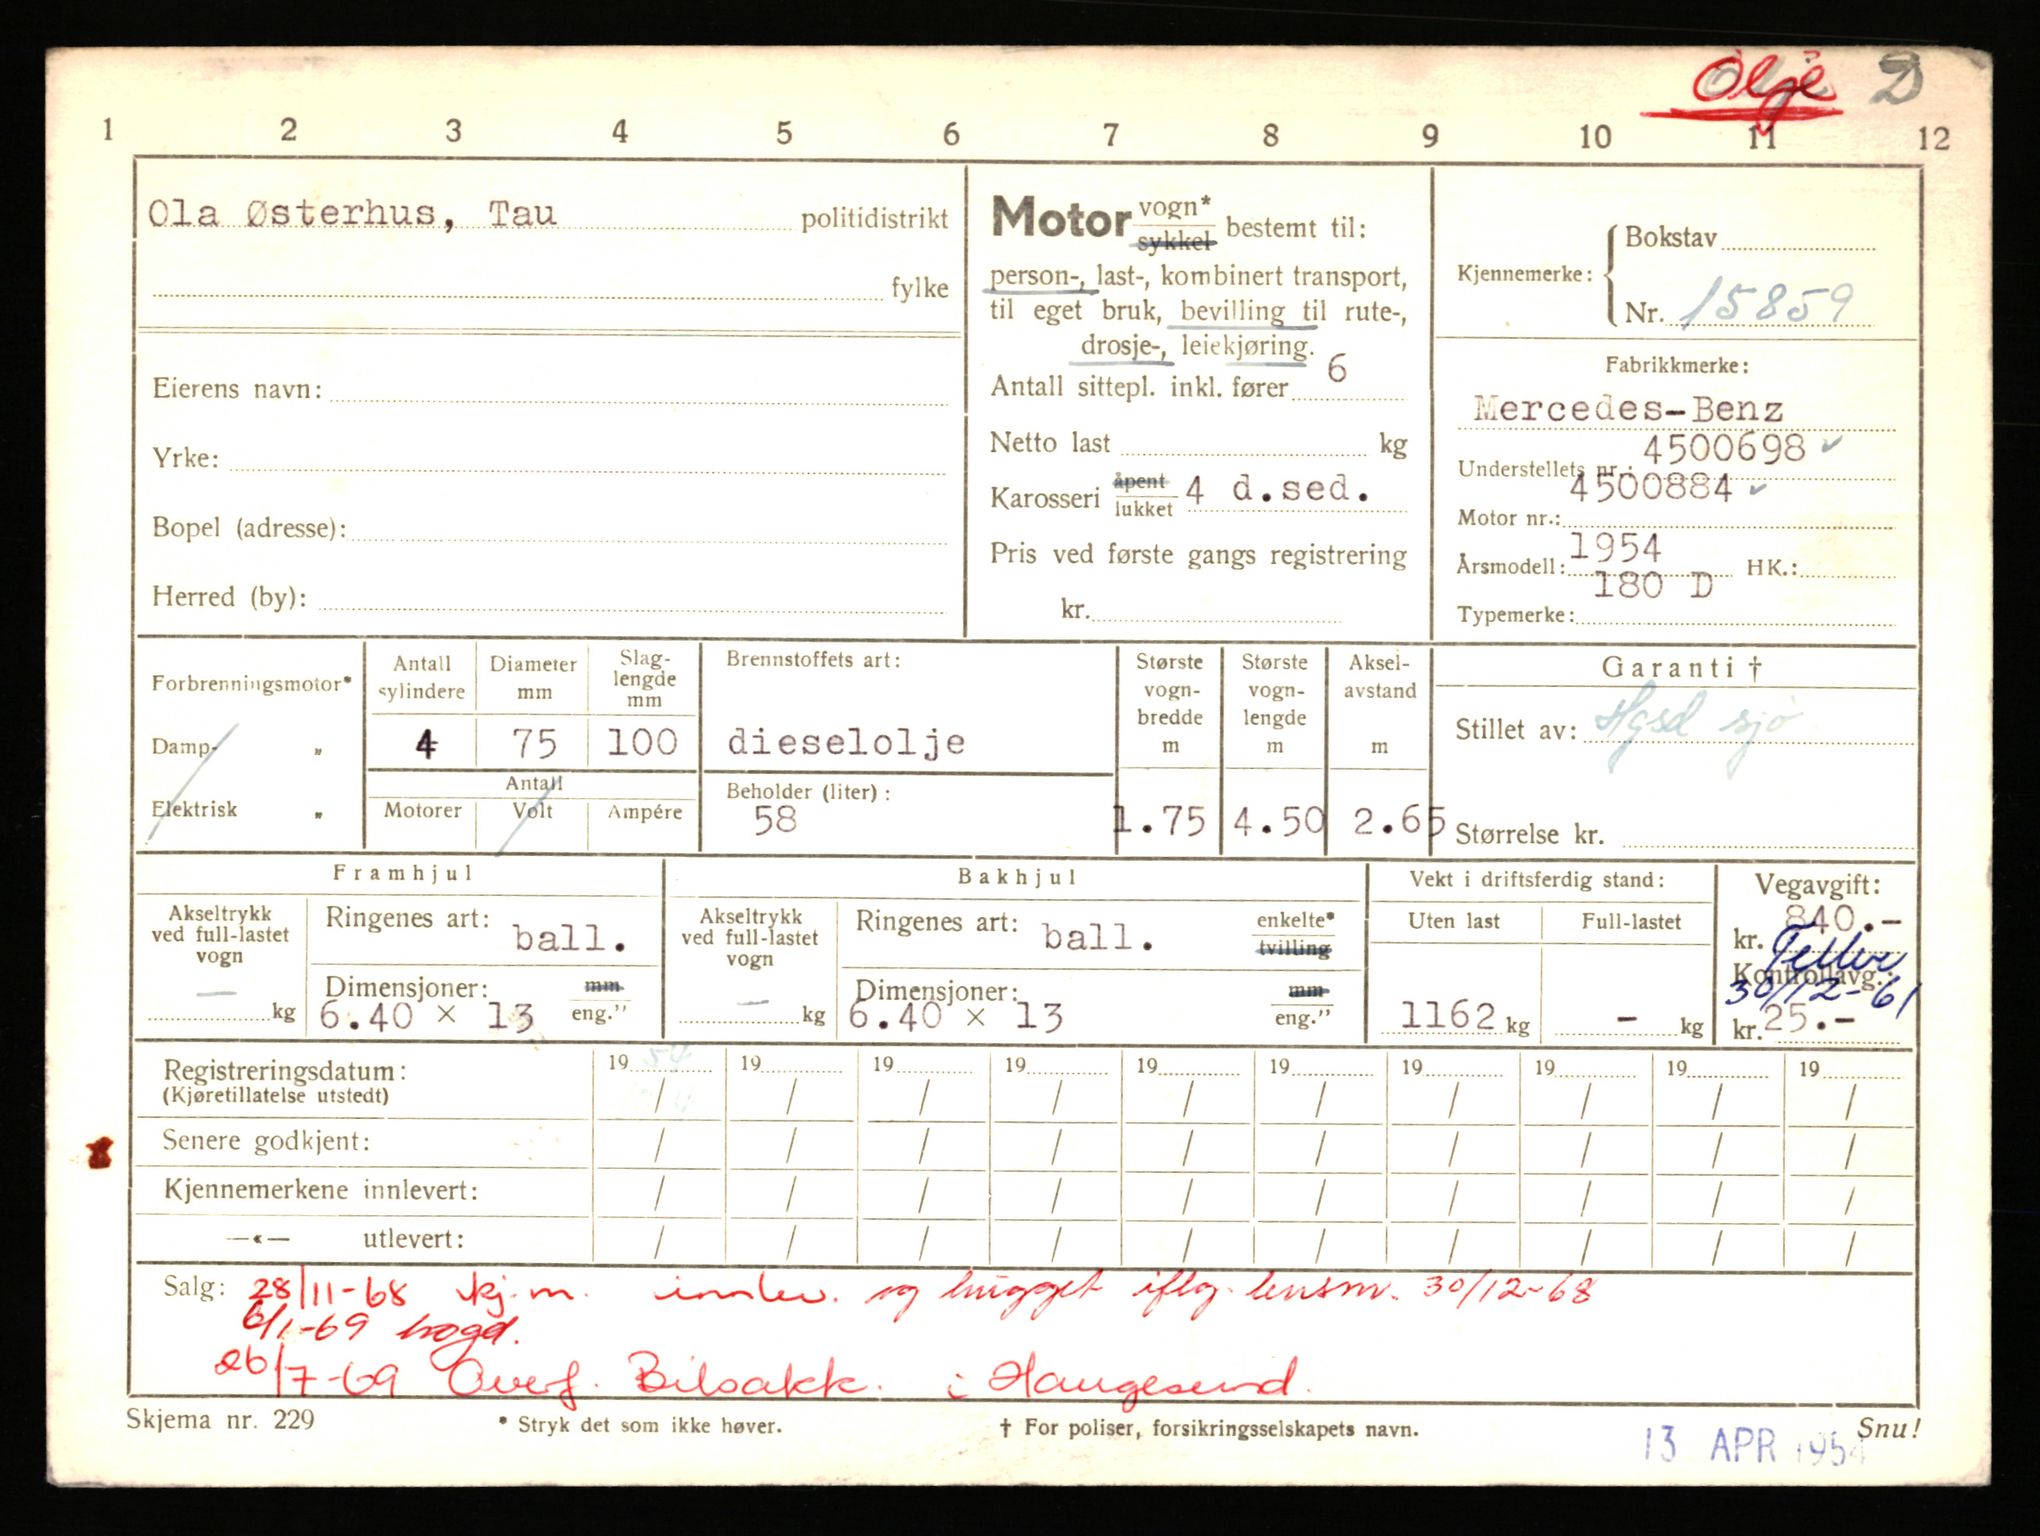 Olje D
1 2 3 4 5 6 7 8 9 10 11 12
Ola Østerhus, Tau politidistrikt
fylke
Eierens navn:
Yrke:
Bopel (adresse):
Herred (by):
Motor vogn*
sykkel bestemt til:
person-, last-, kombinert transport,
til eget bruk, bevilling til rute-,
drosje-, leiekjøring.
Antall sittepl. inkl. fører 6
Netto last kg
Karosseri åpent
lukket 4 d.sed.
Pris ved første gangs registrering
kr.
Kjennemerke: Bokstav
Nr. 15859
Fabrikkmerke:
Mercedes-Benz
Understellets nr.: 4500698
Motor nr.: 4500884
Årsmodell: 1954 HK.:
Typemerke: 180 D
Forbrenningsmotor*
Damp- „
Elektrisk „
Antall sylindere
4
Diameter mm
75
Slag-
lengde
mm
100
Antall
Motorer Volt Ampére
Brennstoffets art:
dieselolje
Beholder (liter):
58
Største
vogn-
bredde
m
1.75
Største
vogn-
lengde
m
4.50
Aksel-
avstand
m
2.65
Garanti †
Stillet av: Hgsd sjø
Størrelse kr.
Framhjul
Akseltrykk
ved full-lastet
vogn
— kg
Ringenes art: ball.
Dimensjoner: mm
6.40 × 13 eng.”
Bakhjul
Akseltrykk
ved full-lastet
vogn
— kg
Ringenes art: ball. enkelte*
tvilling
Dimensjoner: mm
6.40 × 13 eng.”
Vekt i driftsferdig stand:
Uten last Full-lastet
1162 kg - kg
Vegavgift:
kr. 840.-
Kontrollavg.:
30/12-61
kr. 25.-
Registreringsdatum: 19 54 19 19 19 19 19 19 19 19 19
(Kjøretillatelse utstedt) / / / / / / / / / /
Senere godkjent: / / / / / / / / / /
Kjennemerkene innlevert: / / / / / / / / / /
—«— utlevert: / / / / / / / / / /
Salg: 28/11-68 kj.m. innlev. og hugget iflg. lensm. 30/12-68
6/1-69
26/7-69 Overf. Bilsakk. i Haugesund.
Skjema nr. 229 * Stryk det som ikke høver. † For poliser, forsikringsselskapets navn. Snu!
13 APR 1954